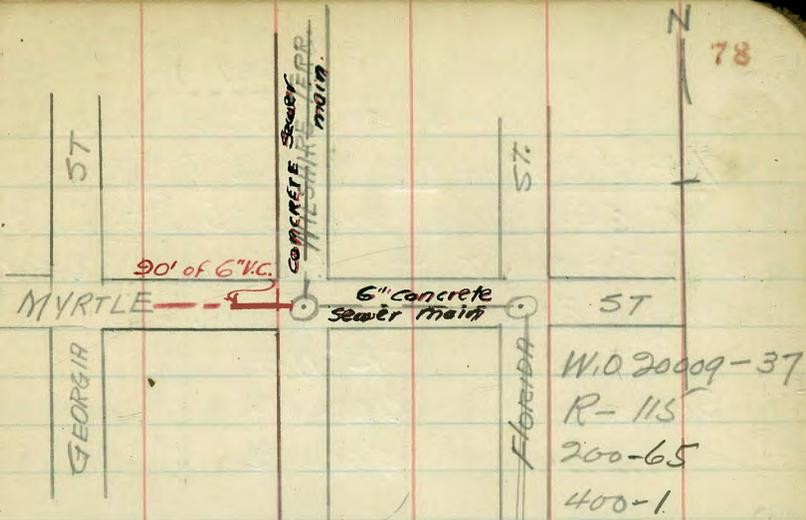 N
78
ST
CONCRETE Sewer
main.
WILSHIRE TERR.
ST.
90' of 6" V.C.
MYRTLE
6" concrete
sewer main
ST
GEORGIA
FLORIDA
W.O. 20009-37
R-115
200-65
400-1